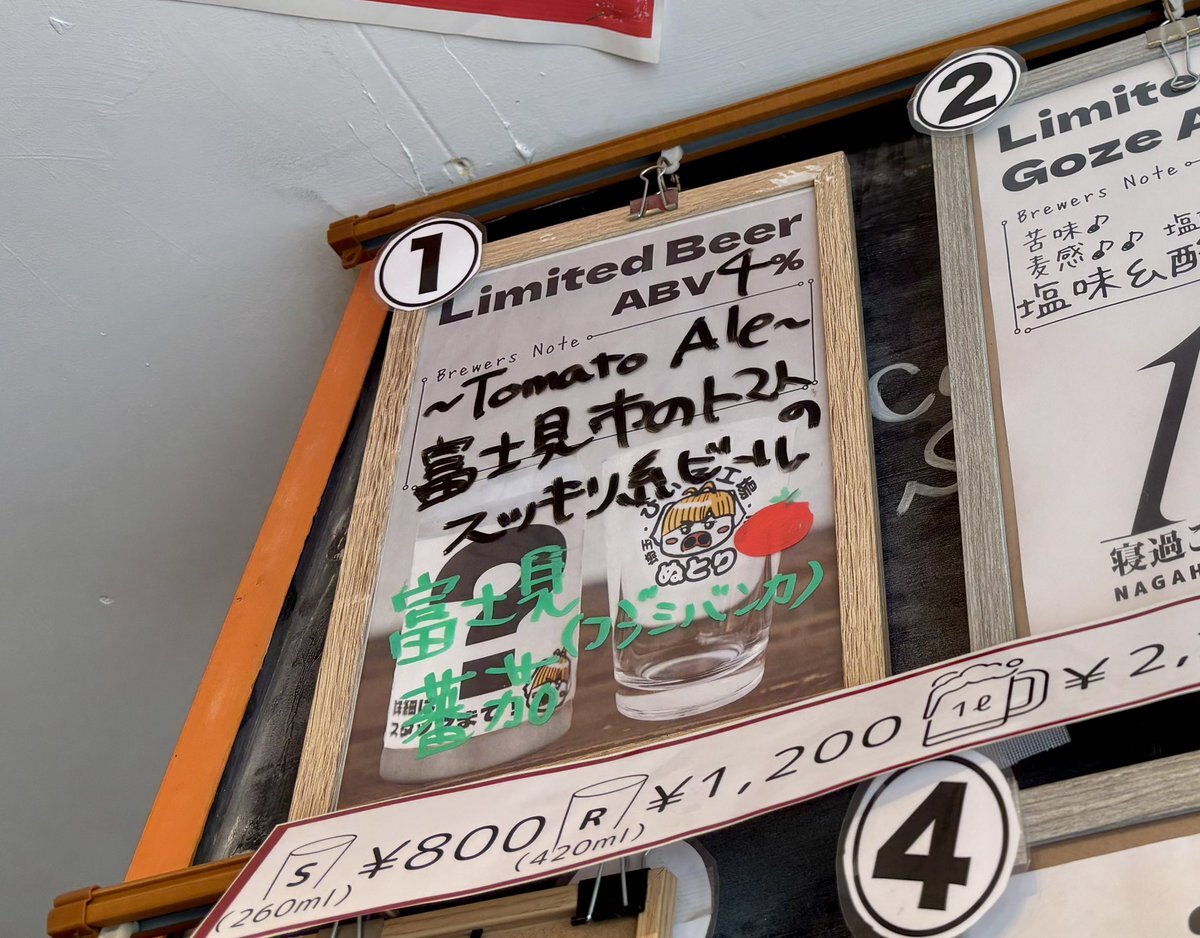 1
Limited Beer
ABV 4%
Brewers Note
~Tomato Ale~
富士見市のトマトの
スッキリ系ビール
ぬとり
富士見
蕃茄
(フジミバンカ)
2
Limite
Goze A
Brewers Note
苦味♪
麦感♪♪ 塩
塩味&酸
1
寝過
NAGAH
S ¥800
(260ml)
R ¥1,200
(420ml)
1ℓ ¥2,
4